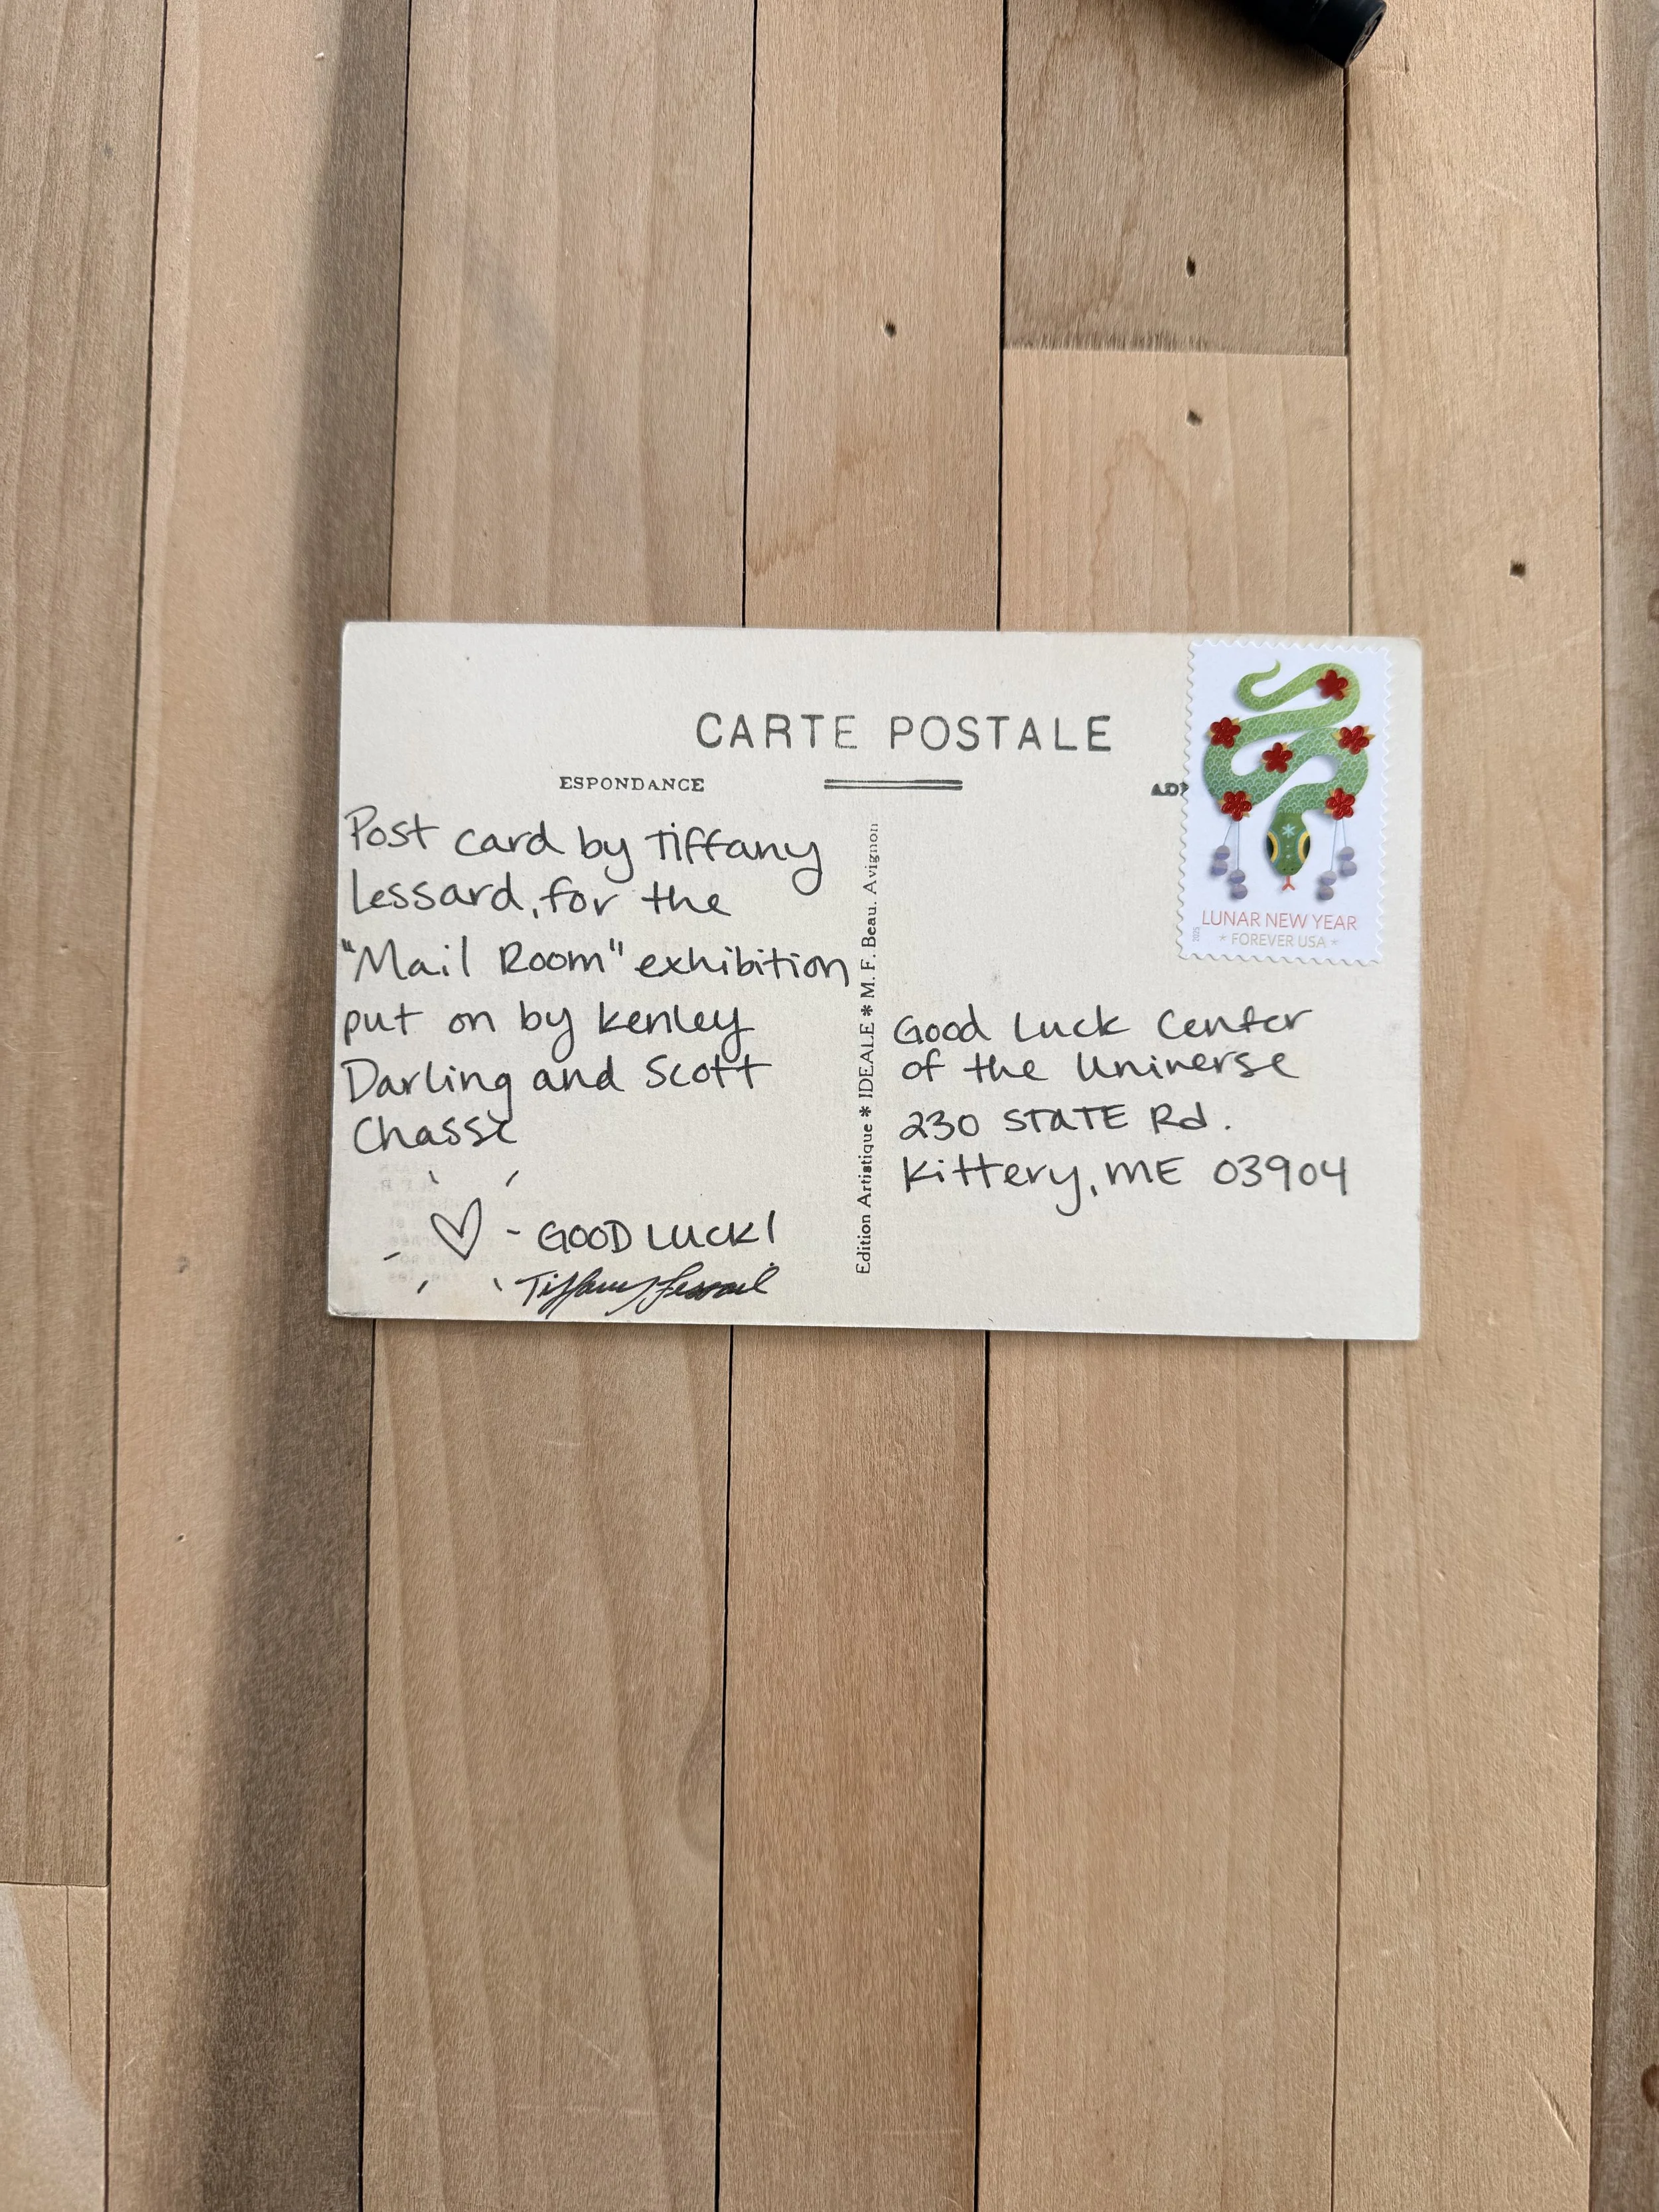 CARTE POSTALE
ESPONDANCE
Post card by Tiffany
Lessard, for the
"Mail Room" exhibition
put on by Kenley
Darling and Scott
Chasse
- GOOD LUCK!
Tiffany Lessard
Edition Artistique * IDEALE * M. F. Beau. Avignon
2025
LUNAR NEW YEAR
* FOREVER USA *
Good Luck Center
of the Universe
230 STATE Rd.
Kittery, ME 03904